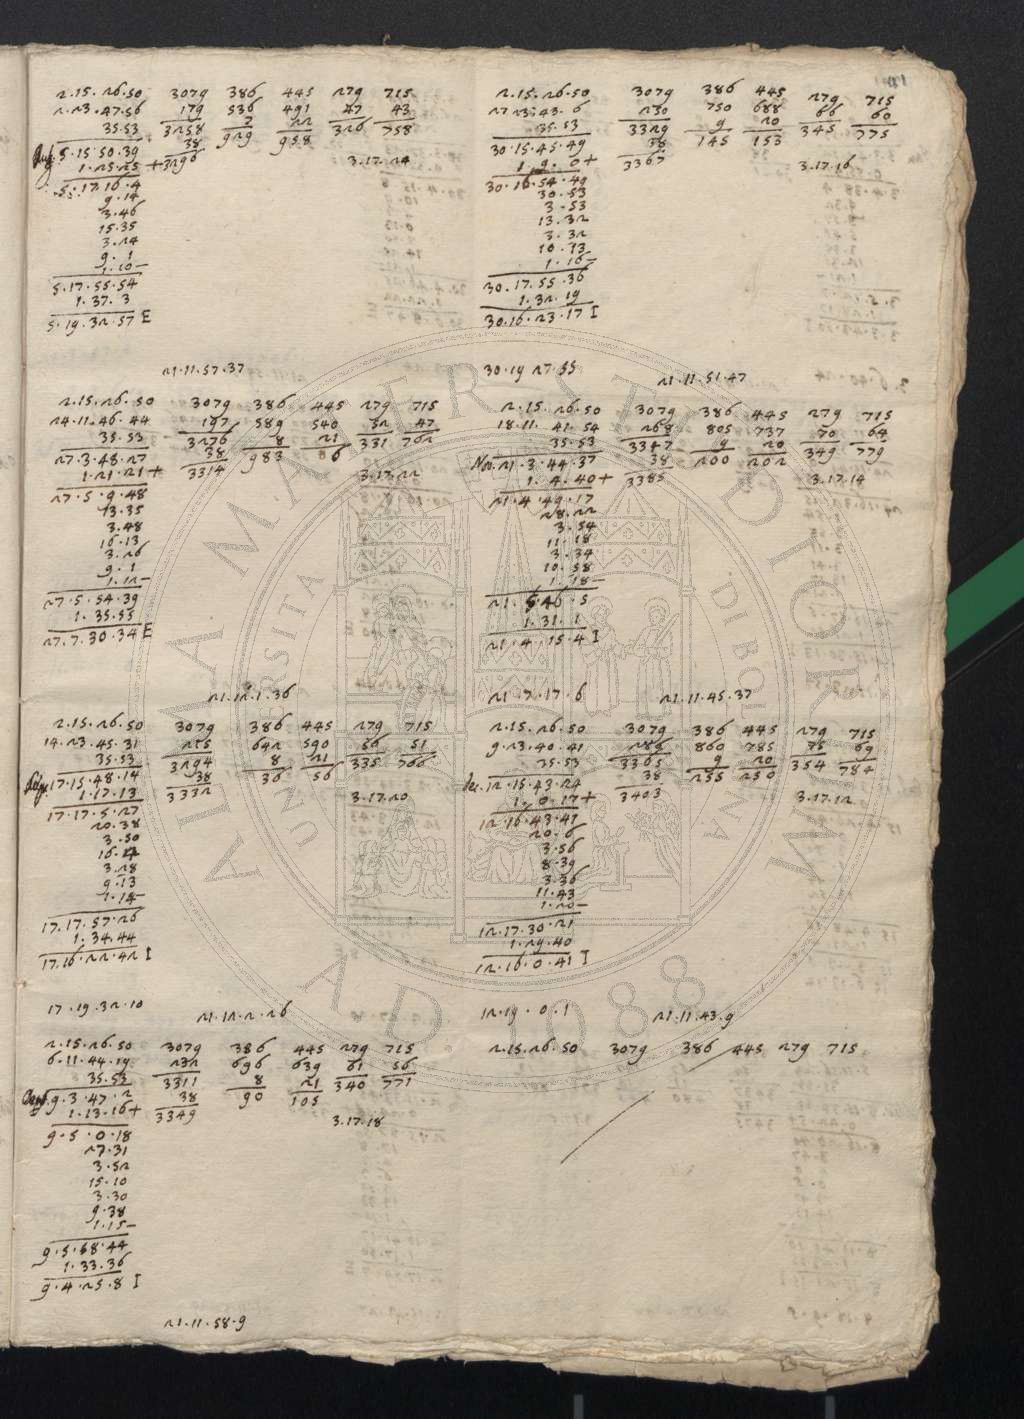 2.15.26.50 3079 386 445 279 715
2.23.47.56 179 536 491 47 43
35.53 3258 7 22 326 758
Aug. 5.15.50.39 38 929 958
1.25.25 + 3296 3.17.24
5.17.16.4
9.14
3.46
15.35
3.24
9.1
1.10 –
5.17.55.54
1.37.3
5.19.32.57 E
21.11.57.37
2.15.26.50 3079 386 445 279 715
24.11.46.44 197 589 540 32 47
35.53 3276 8 21 331 762
27.3.48.27 38 983 06
1.21.21 + 3314 3.17.22
27.5.9.48
13.35
3.48
16.13
3.26
9.1
1.12 –
27.5.54.39
1.35.55
27.7.30.34 E
21.12.1.36
2.15.26.50 3079 386 445 279 715
14.23.45.31 215 642 590 56 51
35.53 3294 8 21 335 766
17.15.48.14 38 36 56
1.17.13 3332 3.17.20
17.17.5.27
20.38
3.50
16.2
3.28
9.13
1.14 –
17.17.57.26
1.34.44
17.16.22.42 I
17.19.32.10 21.12.2.26
2.15.26.50 3079 386 445 279 715
6.11.44.19 232 696 639 61 56
35.53 3311 8 21 340 771
9.3.47.2 38 90 105
1.13.16 + 3349 3.17.18
9.5.0.18
27.31
3.52
15.10
3.30
9.38
1.15 –
9.5.58.44
1.33.36
9.4.25.8 I
21.11.58.9
2.15.26.50 3079 386 445 279 715
27.23.43.6 250 750 688 66 60
35.53 3329 9 20 345 775
30.15.45.49 38 145 153
1.9.0 + 3367 3.17.16
30.16.54.49
30.53
3.53
13.32
3.32
10.13
1.16 –
30.17.55.36
1.32.19
30.16.23.17 I
30.19.27.55 21.11.51.47
2.15.26.50 3079 386 445 279 715
18.11.41.54 268 805 737 70 64
35.53 3347 9 20 349 779
21.3.44.37 38 200 202
1.4.40 + 3385 3.17.14
21.4.49.17
28.22
3.54
11.18
3.34
10.58
1.18 –
21.5.46.5
1.31.1
21.4.15.4 I
21.7.17.6 21.11.45.37
2.15.26.50 3079 386 445 279 715
9.23.40.41 286 860 785 75 69
35.53 3365 9 20 354 784
12.15.43.24 38 255 250
1.0.17 + 3403 3.17.12
12.16.43.41
20.6
3.56
8.39
3.36
11.43
1.20 –
12.17.30.21
1.29.40
12.16.0.41 I
12.19.0.1 21.11.43.9
2.15.26.50 3079 386 445 279 715
ALMA MATER STUDIORUM
A.D. 1088